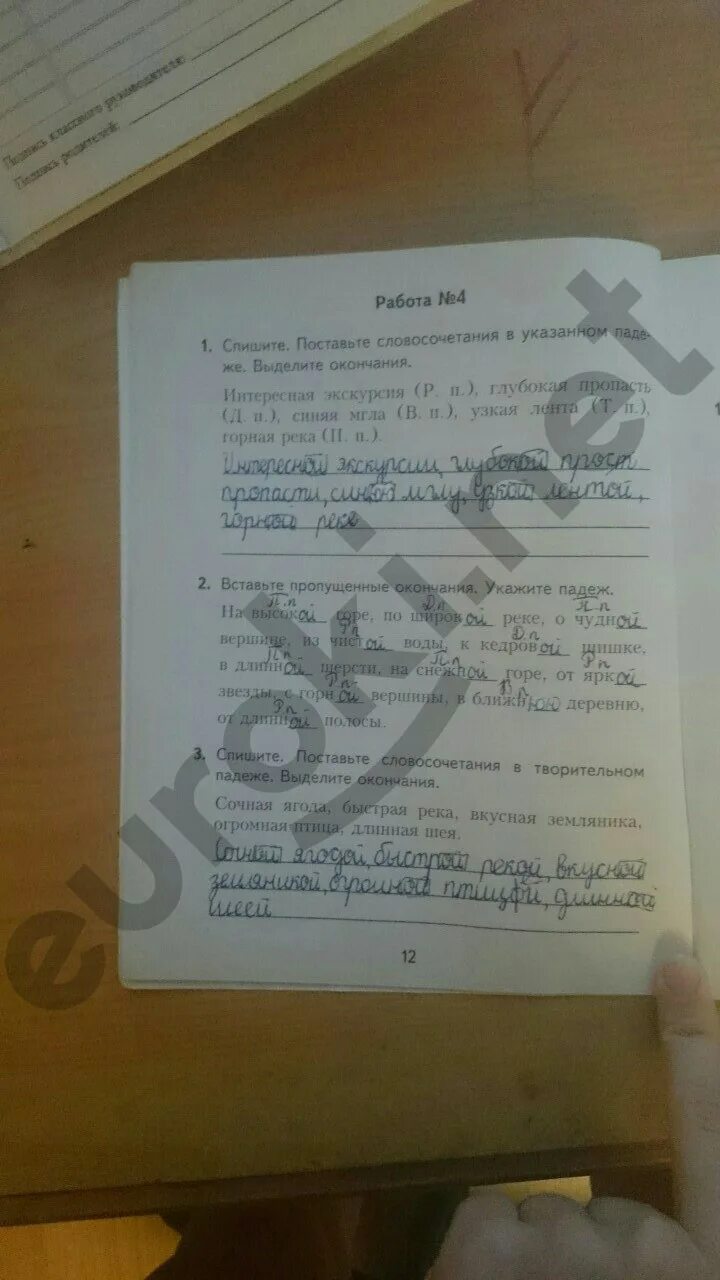 Подпись классного руководителя:
Подпись родителей:
Работа №4
1. Спишите. Поставьте словосочетания в указанном паде-
же. Выделите окончания.
Интересная экскурсия (Р. п.), глубокая пропасть
(Д. п.), синяя мгла (В. п.), узкая лента (Т. п.),
горная река (П. п.).
Интересной экскурсии, глубокой
пропасти, синюю мглу, узкой лентой,
горной реке
2. Вставьте пропущенные окончания. Укажите падеж.
П.п Д.п П.п
На высокой горе, по широкой реке, о чудной
Рп Дп
вершине, из чистой воды, к кедровой шишке,
Пп П.п Рп
в длинной шерсти, на снежной горе, от яркой
Рп Вп
звезды, с горной вершины, в ближнюю деревню,
Рп
от длинной полосы.
3. Спишите. Поставьте словосочетания в творительном
падеже. Выделите окончания.
Сочная ягода, быстрая река, вкусная земляника,
огромная птица, длинная шея.
Сочной ягодой, быстрой рекой, вкусной
земляникой, огромной птицей, длинной
шеей
12
euroki.net